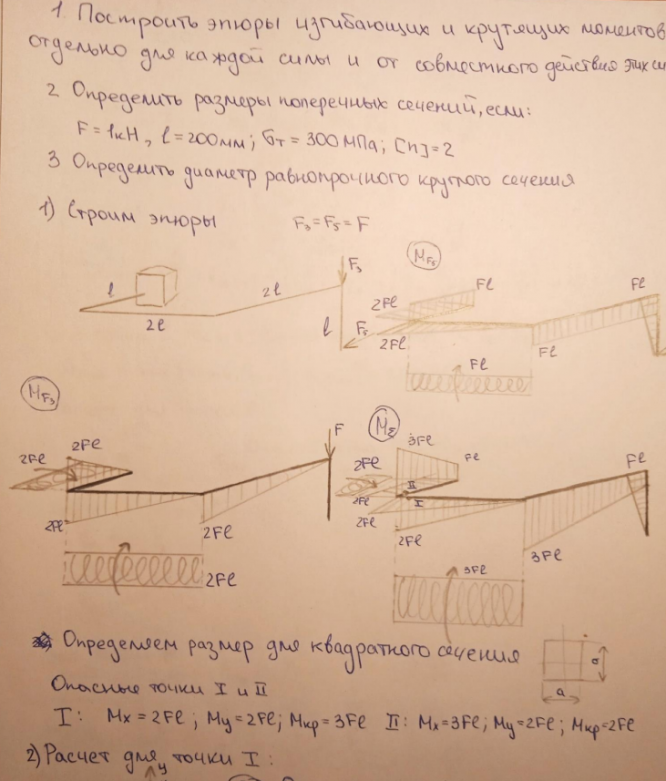 1. Построить эпюры изгибающих и крутящих моментов
отдельно для каждой силы и от совместного действия этих си
2 Определить размеры поперечных сечений, если:
F = 1кН, l = 200мм; σт = 300 МПа; [n] = 2
3 Определить диаметр равнопрочного круглого сечения
1) Строим эпюры F₃ = F₅ = F
l
2l
2l
F₃
l
F₅
M_F₅
2Fl
Fl
2Fl
Fl
Fl
Fl
M_F₃
2Fl
2Fl
2Fl
2Fl
2Fl
F
M_Σ
3Fl
2Fl
Fl
II
2Fl
I
2Fl
2Fl
Fl
3Fl
3Fl
Определяем размер для квадратного сечения
a
a
Опасные точки I и II
I: Mx = 2Fl; My = 2Fl; Mкр = 3Fl II: Mx = 3Fl; My = 2Fl; Mкр = 2Fl
2) Расчет для точки I:
y